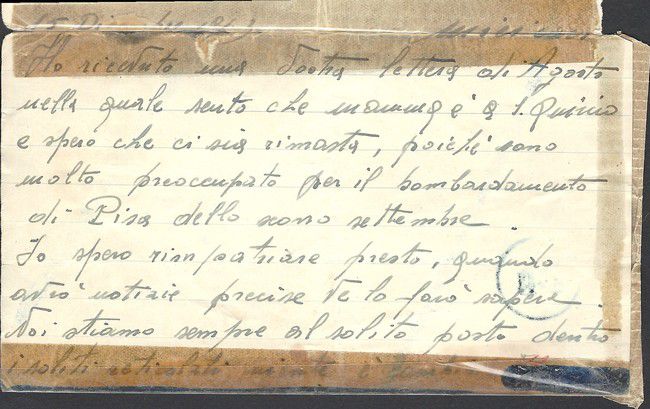 Ho ricevuto una vostra lettera di Agosto
nella quale sento che mamma è a S. Quirico
e spero che ci sia rimasta, poiché sono
molto preoccupato per il bombardamento
di Pisa dello scorso settembre.
Io spero rimpatriare presto, quando
avrò notizie precise ve lo farò sapere.
Noi stiamo sempre al solito posto dentro
i soliti reticolati niente è